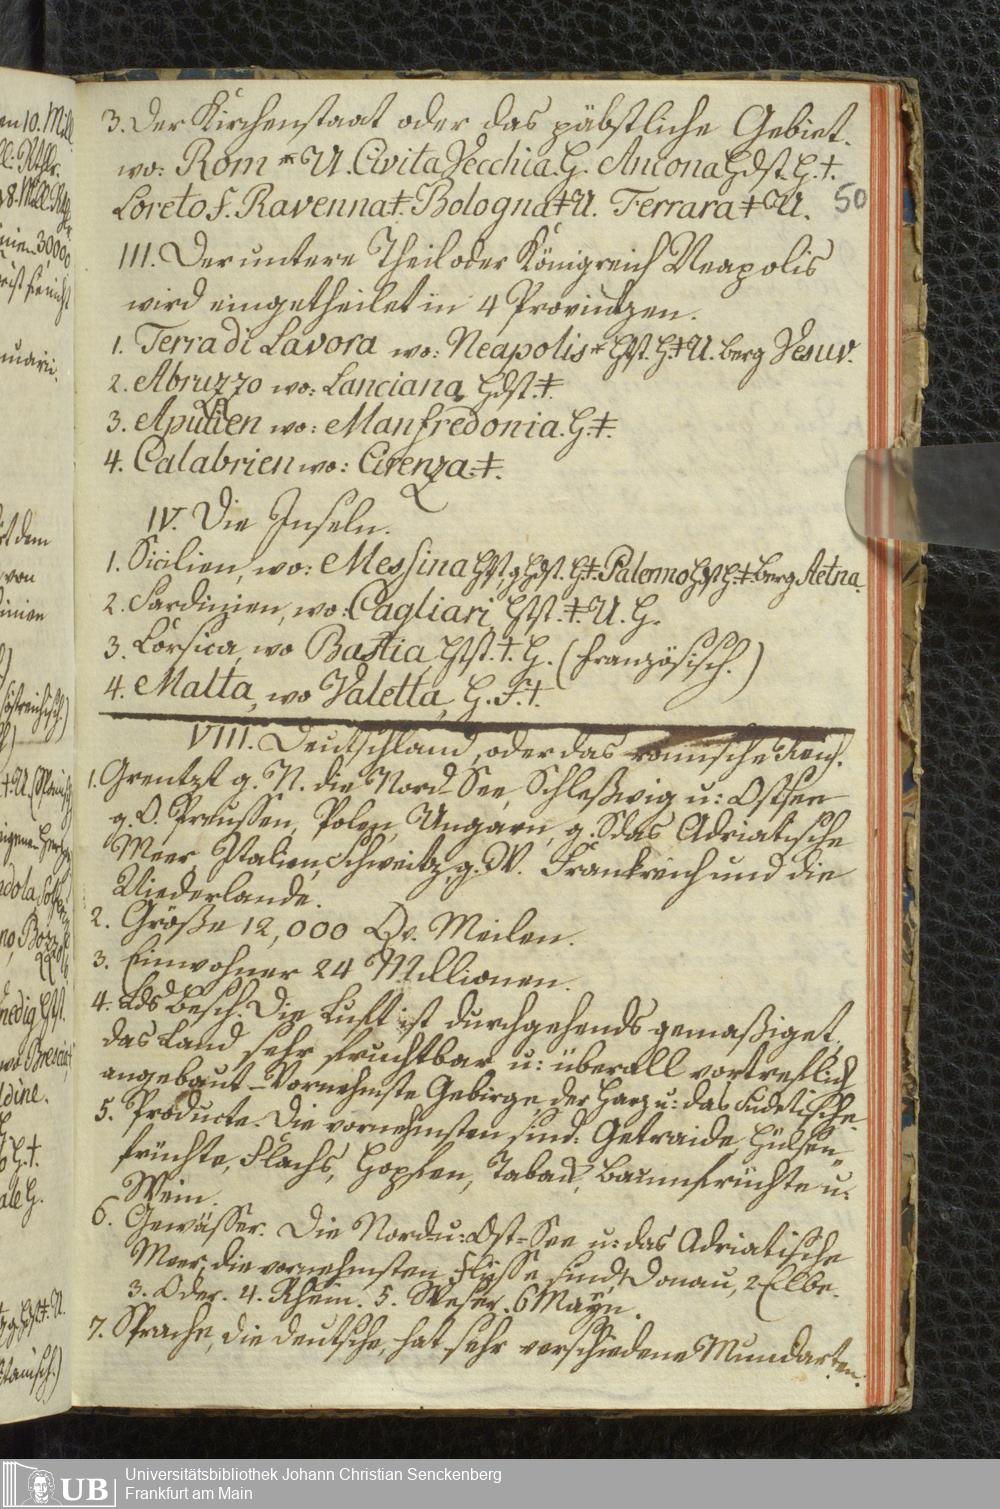 3. Der Kirchenstaat oder das päbstliche Gebiet.
wo: Rom * U. Civita Vecchia. H. Ancona Hdst. H. ‡.
Loreto f. Ravenna ‡. Bologna ‡ U. Ferrara ‡ U. 50
III. Der untere Theil oder Königreich Neapolis
wird eingetheilet in 4 Provintzen.
1. Terra di Lavora wo: Neapolis * Hst. H. ‡ U. berg Vesuv.
2. Abruzzo wo: Lanciana Hdst. ‡.
3. Apulien wo: Manfredonia. H. ‡.
4. Calabrien wo: Cirenza. ‡.
IV. Die Inseln.
1. Sicilien, wo: Messina Hst. Hdst. H. ‡. Palermo Hst H. ‡. berg Aetna.
2. Sardinien, wo: Cagliari, Hst. ‡. U. H.
3. Corsica, wo Bastia Hst. ‡. H. (französisch.)
4. Malta, wo Valetta, H. F. ‡.
VIII. Deutschland, oder das römische Reich.
1. Grentzt g. N. die Nord See, Schleßwig u: Ostsee
g. O. Preussen, Polen, Ungarn, g. S das Adriatische
Meer Italien, Schweitz, g. W. Frankreich und die
Niederlande.
2. Größe 12,000 Qv. Meilen.
3. Einwohner 24 Millionen.
4. Lds Besch. Die Luft ist durchgehends gemaßiget,
das Land sehr fruchtbar u: überall vortreflich
angebaut - Vornehmste Gebirge, der Harz u: das Sudetische.
5. Producte. Die vornehmsten sind: Getraide, Hülsen
früchte, Flachs, Hopfen, Taback, Baumfrüchte u:
Wein.
6. Gewässer. Die Nord u: Ost-See u: das Adriatische
Meer; die vornehmsten Flüsse sind 1 Donau, 2 Elbe.
3. Oder. 4. Rhein. 5. Weser. 6 Mayn.
7. Sprache, die deutsche, hat sehr verschiedene Mundarten.
UB
Universitätsbibliothek Johann Christian Senckenberg
Frankfurt am Main